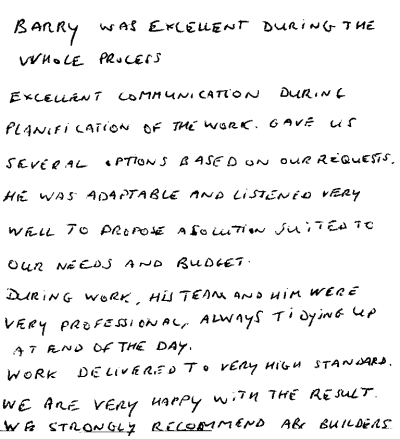 BARRY WAS EXCELLENT DURING THE
WHOLE PROCESS
EXCELLENT COMMUNICATION DURING
PLANIFICATION OF THE WORK. GAVE US
SEVERAL OPTIONS BASED ON OUR REQUESTS.
HE WAS ADAPTABLE AND LISTENED VERY
WELL TO PROPOSE A SOLUTION SUITED TO
OUR NEEDS AND BUDGET.
DURING WORK, HIS TEAM AND HIM WERE
VERY PROFESSIONAL, ALWAYS TIDYING UP
AT END OF THE DAY.
WORK DELIVERED TO VERY HIGH STANDARD.
WE ARE VERY HAPPY WITH THE RESULT.
WE STRONGLY RECOMMEND ABC BUILDERS